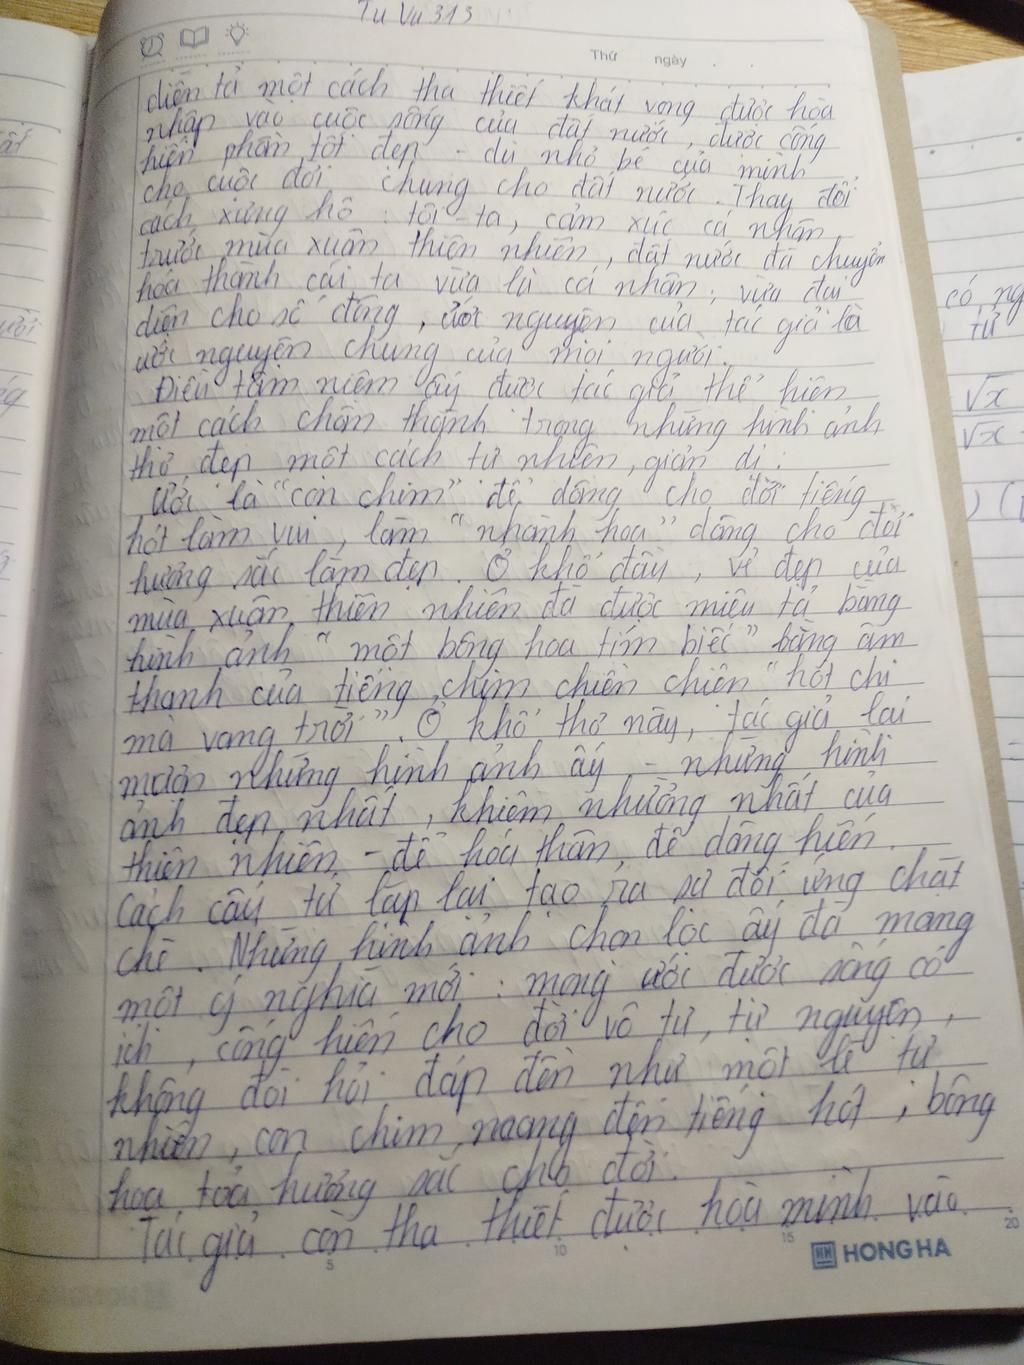 Tu Vu 313
Thứ ngày
diễn tả một cách tha thiết khát vọng được hòa
nhập vào cuộc sống của đất nước, được cống
hiến phần tốt đẹp - dù nhỏ bé của mình
cho cuộc đời chung cho đất nước. Thay đổi
cách xưng hô : tôi - ta, cảm xúc cá nhân
trước mùa xuân thiên nhiên, đất nước đã chuyển
hóa thành cái ta vừa là cá nhân, vừa đại
diện cho số đông, ước nguyện của tác giả là
ước nguyện chung của mọi người.
Điều tâm niệm ấy được tác giả thể hiện
một cách chân thành trong những hình ảnh
thơ đẹp một cách tự nhiên, giản dị :
Ước là "con chim" để dâng cho đời tiếng
hót làm vui, làm "nhành hoa" dâng cho đời
hương sắc lắm đẹp. Ở khổ đầu, vẻ đẹp của
mùa xuân thiên nhiên đã được miêu tả bằng
hình ảnh "một bông hoa tím biếc" bằng âm
thanh của tiếng chim chiền chiện "hót chi
mà vang trời". Ở khổ thơ này, tác giả lại
mượn những hình ảnh ấy - những hình
ảnh đẹp nhất, khiêm nhường nhất của
thiên nhiên - để hóa thân, để dâng hiến.
Cách cấu tứ lặp lại tạo ra sự đối ứng chặt
chẽ. Những hình ảnh chọn lọc ấy đã mang
một ý nghĩa mới : mong ước được sống có
ích, cống hiến cho đời vô tư, tự nguyện,
không đòi hỏi đáp đền như một lẽ tự
nhiên, con chim maang đến tiếng hót, bông
hoa tỏa hương sắc cho đời.
Tác giả còn tha thiết được hòa mình vào
5 10 15 20
HONG HA
có ng
từ
√x
√x